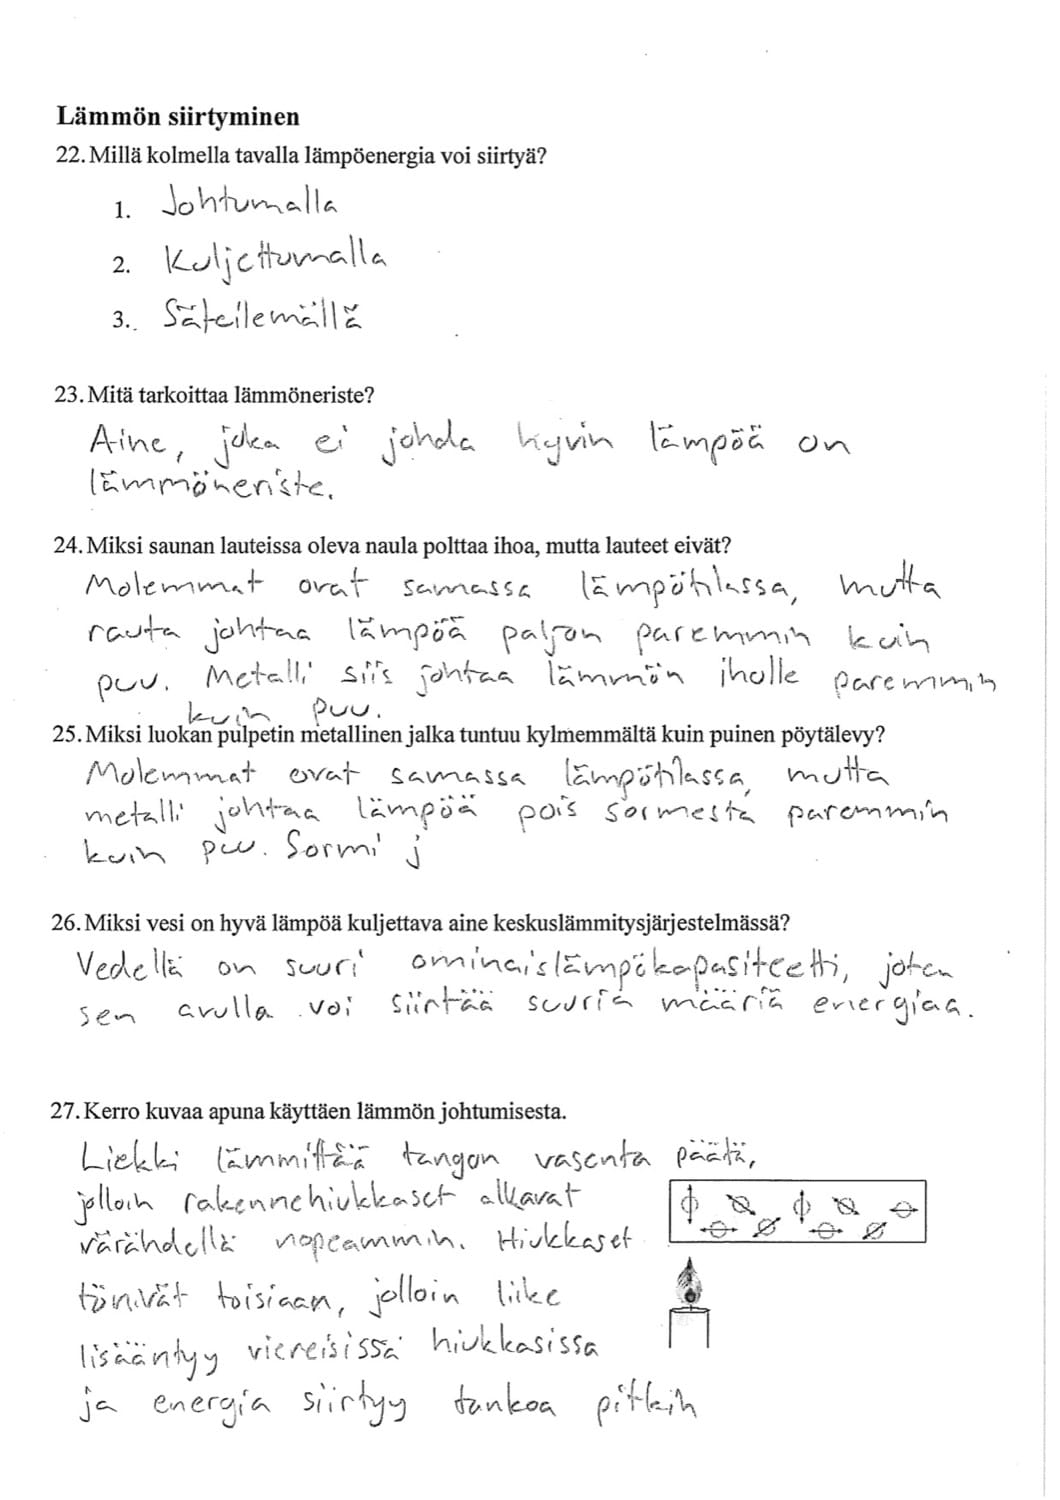 Lämmön siirtyminen
22. Millä kolmella tavalla lämpöenergia voi siirtyä?
1. Johtumalla
2. Kuljettumalla
3. Säteilemällä
23. Mitä tarkoittaa lämmöneriste?
Aine, joka ei johda hyvin lämpöä on
lämmöneriste.
24. Miksi saunan lauteissa oleva naula polttaa ihoa, mutta lauteet eivät?
Molemmat ovat samassa lämpötilassa, mutta
rauta johtaa lämpöä paljon paremmin kuin
puu. Metalli siis johtaa lämmön iholle paremmin
kuin puu.
25. Miksi luokan pulpetin metallinen jalka tuntuu kylmemmältä kuin puinen pöytälevy?
Molemmat ovat samassa lämpötilassa, mutta
metalli johtaa lämpöä pois sormesta paremmin
kuin puu. Sormi j
26. Miksi vesi on hyvä lämpöä kuljettava aine keskuslämmitysjärjestelmässä?
Vedellä on suuri ominaislämpökapasiteetti, joten
sen avulla voi siirtää suuria määriä energiaa.
27. Kerro kuvaa apuna käyttäen lämmön johtumisesta.
Liekki lämmittää tangon vasenta päätä,
jolloin rakennehiukkaset alkavat
värähdellä nopeammin. Hiukkaset
tönivät toisiaan, jolloin liike
lisääntyy viereisissä hiukkasissa
ja energia siirtyy tankoa pitkin